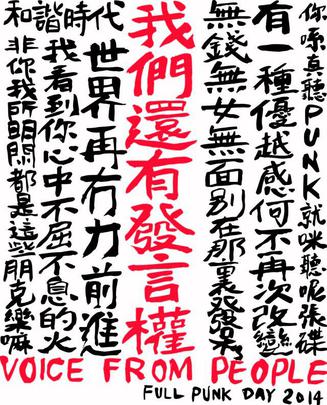 你係真聽PUNK就咪聽呢張碟
有一種優越感何不再次改變
無錢無女無面別在那裏發呆
我們還有發言權
和諧時代
世界再冇力前進
我看到你心中不屈不息的火
非你我所都是這些朋克樂嘛
VOICE FROM PEOPLE
FULL PUNK DAY 2014